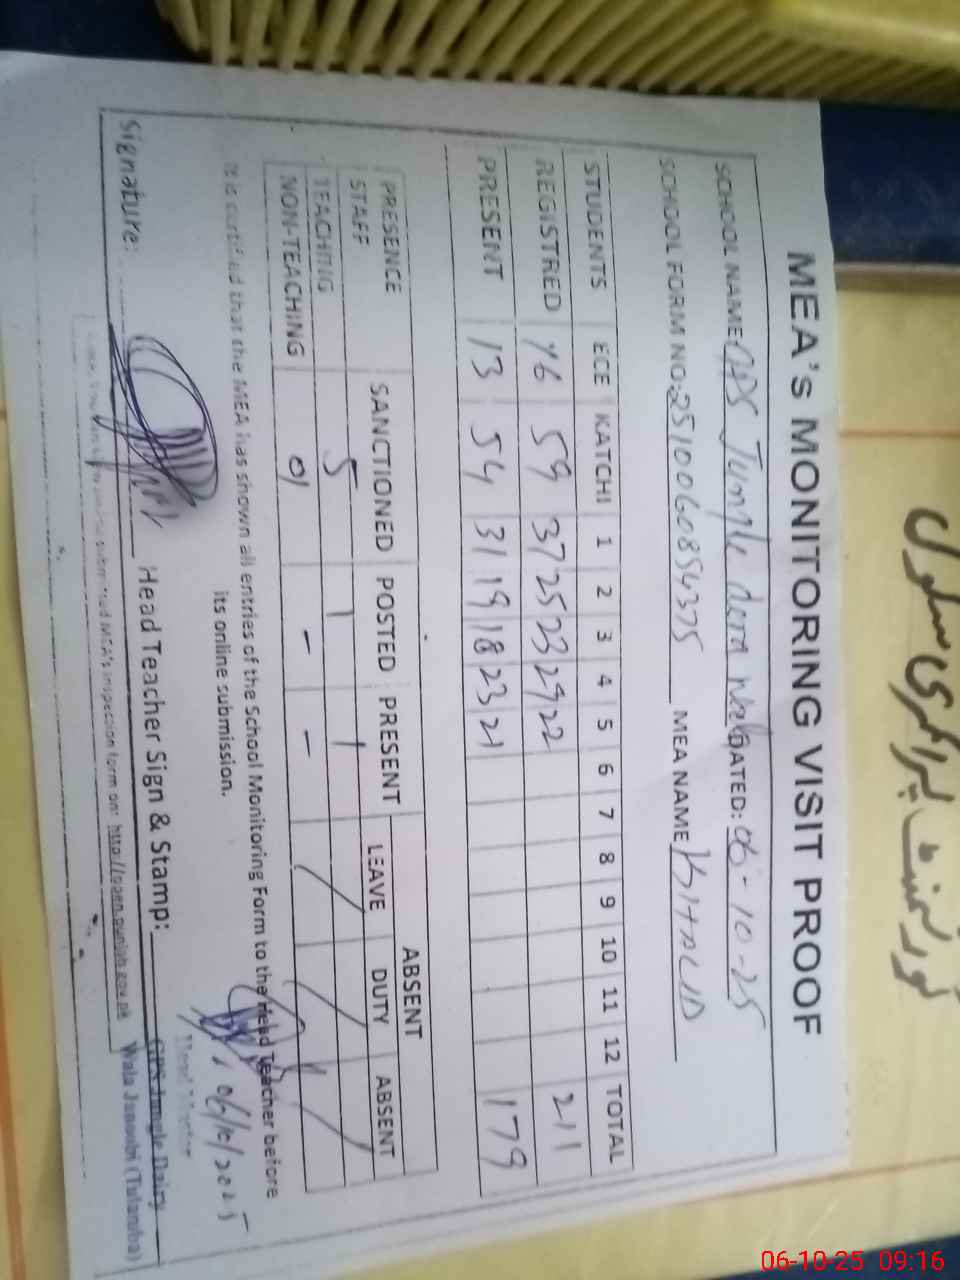 گورنمنٹ پرائمری سکول
MEA's MONITORING VISIT PROOF
SCHOOL NAME: GPS Jungle dera Wala DATED: 06-10-25
SCHOOL FORM NO: 2510060854375 MEA NAME KHALID
STUDENTS ECE KATCHI 1 2 3 4 5 6 7 8 9 10 11 12 TOTAL
REGISTRED 16 59 37 25 23 29 22 211
PRESENT 13 54 31 19 18 23 21 179
PRESENCE SANCTIONED POSTED PRESENT ABSENT
STAFF LEAVE DUTY ABSENT
TEACHTIG 5 1 1
NON-TEACHING 01 - -
It is certified that the MEA has shown all entries of the School Monitoring Form to the Head Teacher before
its online submission.
06/10/2025
Head Master
Signature: Head Teacher Sign & Stamp: GPS Jungle Dairy
Wala Janoobi (Tulamba)
submitted MEA's inspection form on: http://open.punjab.gov.pk
06-10-25 09:16